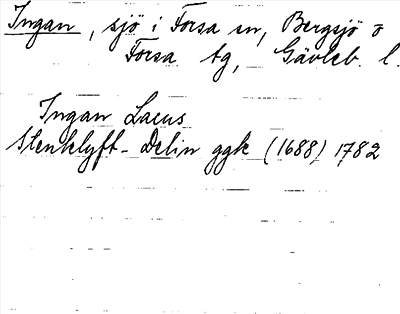 Ingan, sjö i Forsa sn, Bergsjö o
Forsa tg, Gävleb. l.
Ingan Lacus
Stenklyft-Delin ggk (1688) 1782